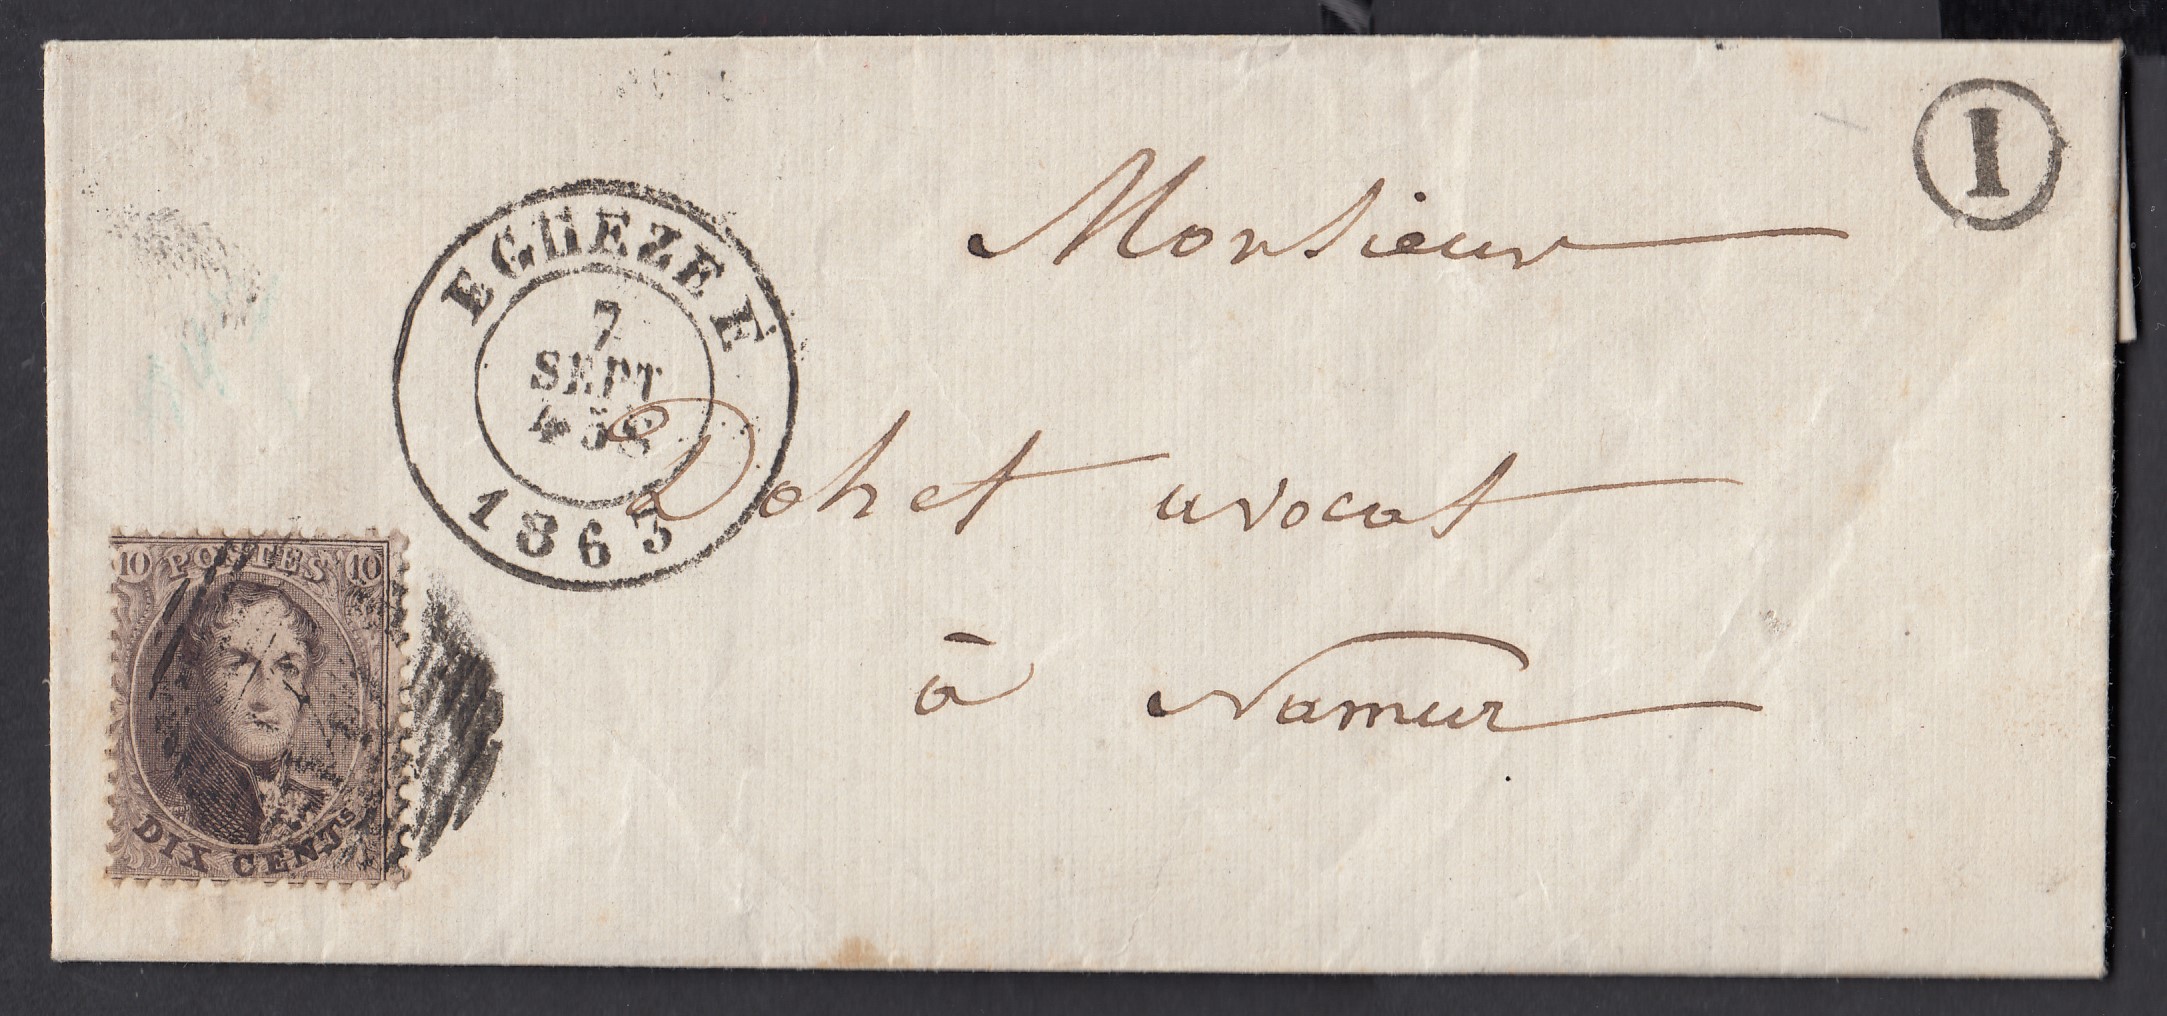 1
EGHEZEE
7
SEPT
1863
Monsieur
Dohet avocat
à Namur
10 POSTES 10
DIX CENTS